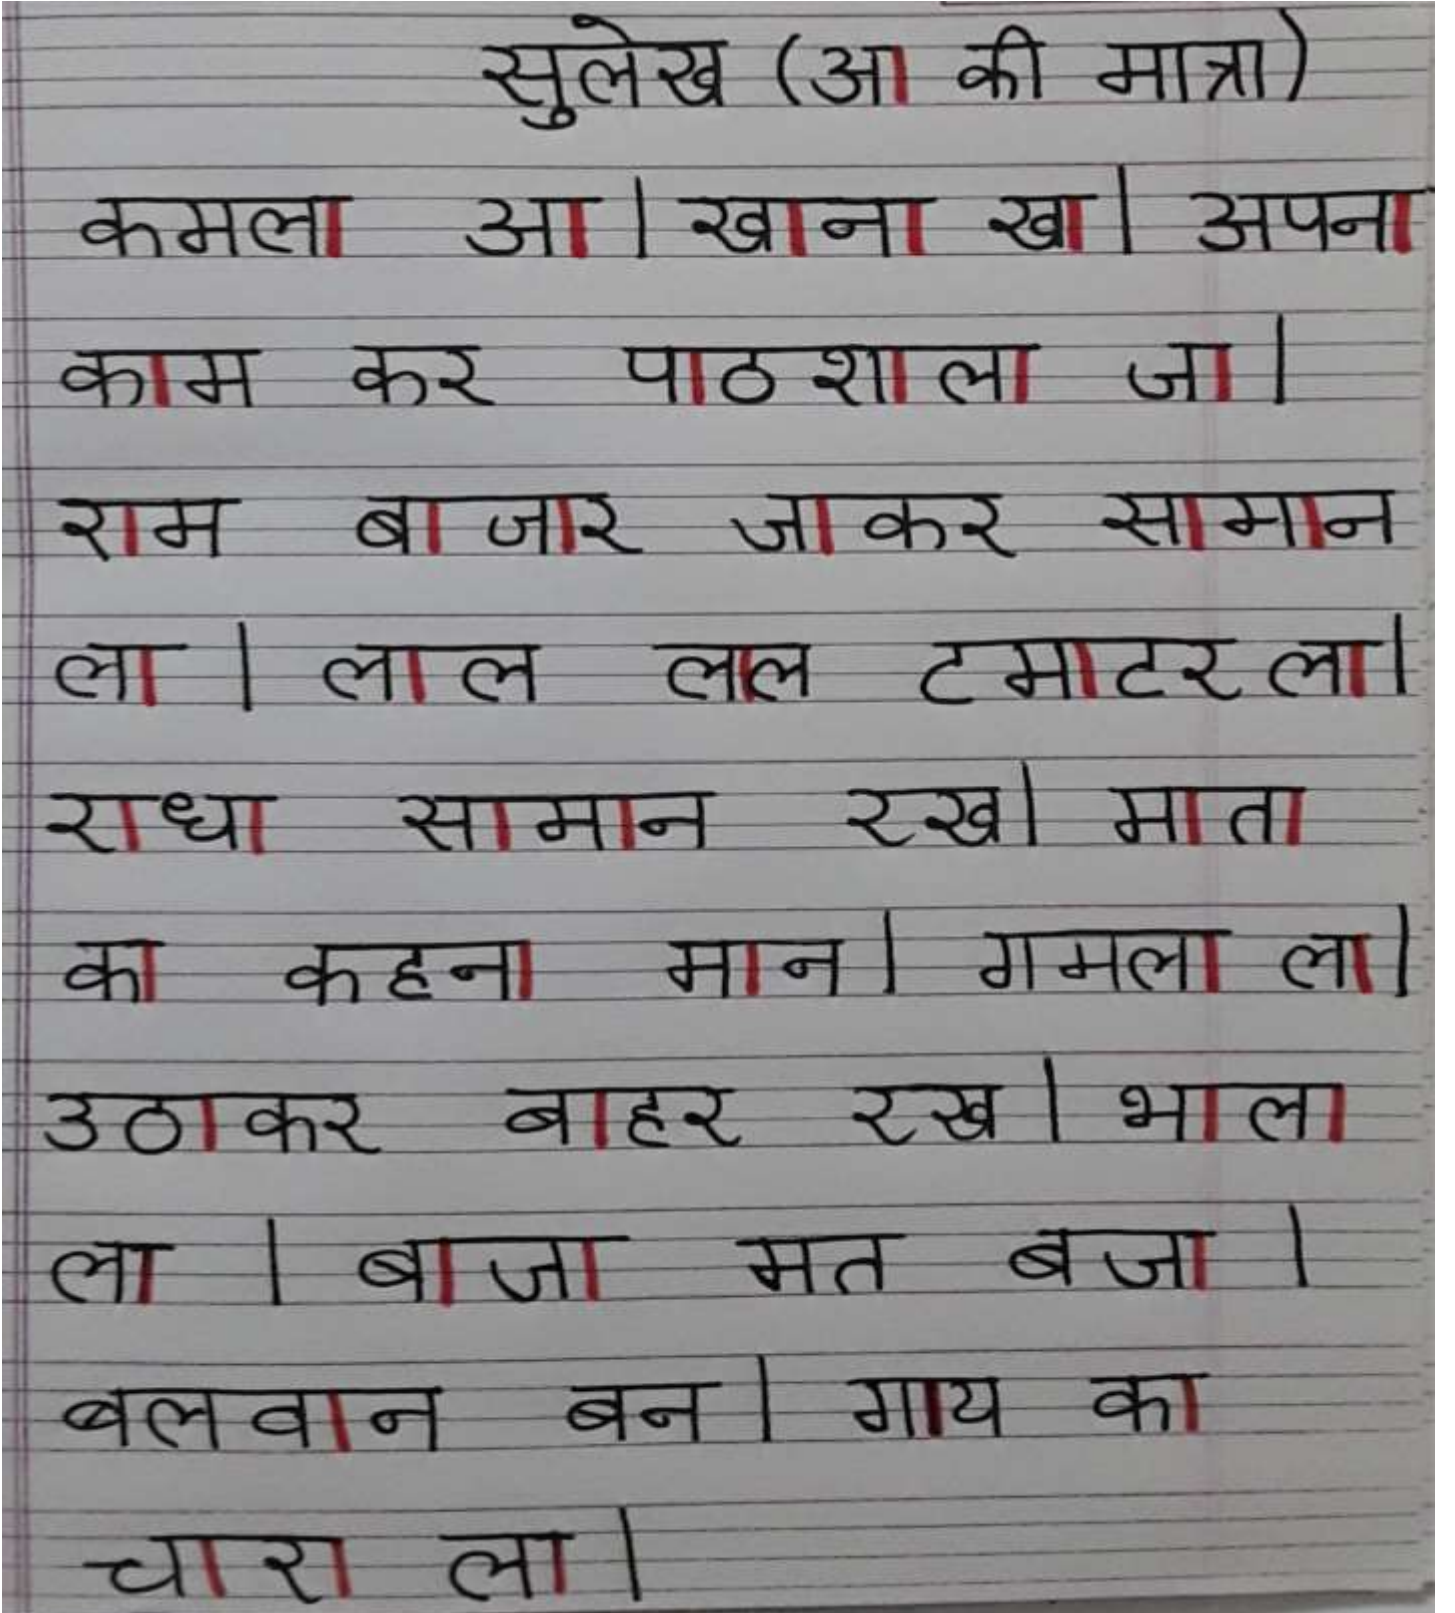 सुलेख (आ की मात्रा)
कमला आ। खाना खा। अपना
काम कर पाठशाला जा।
राम बाजार जाकर सामान
ला। लाल लाल टमाटर ला।
राधा सामान रख। माता
का कहना मान। गमला ला।
उठाकर बाहर रख। भाला
ला। बाजा मत बजा।
बलवान बन। गाय का
चारा ला।